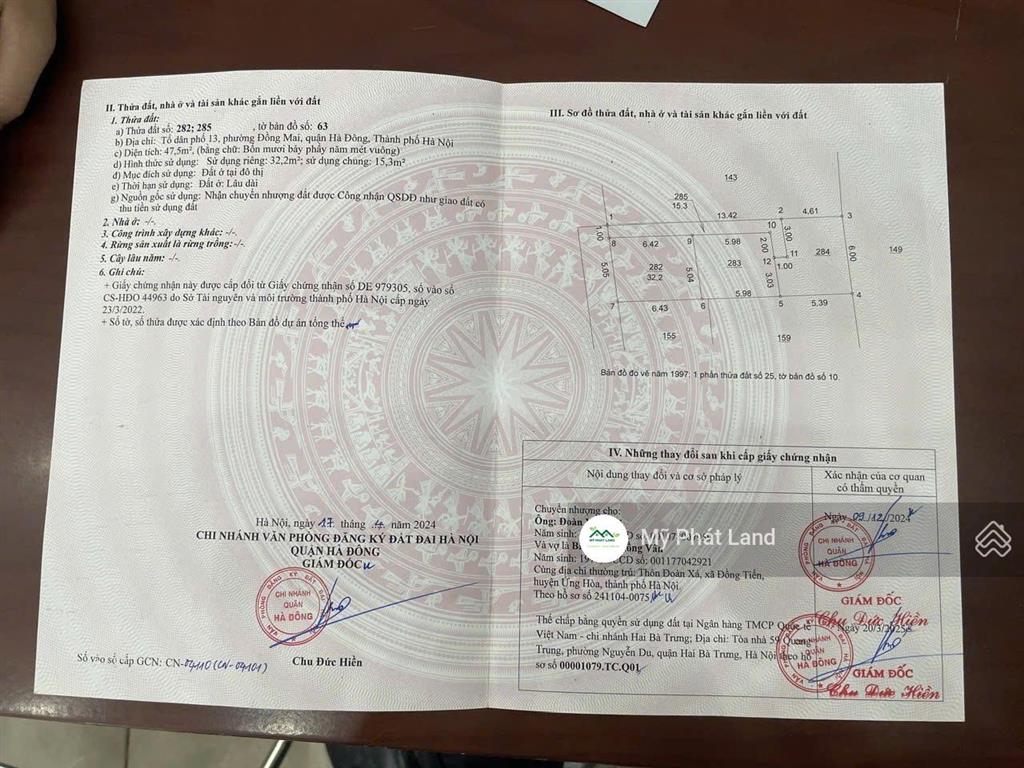 II. Thửa đất, nhà ở và tài sản khác gắn liền với đất
1. Thửa đất:
a) Thửa đất số: 282; 285 , tờ bản đồ số: 63
b) Địa chỉ: Tổ dân phố 13, phường Đồng Mai, quận Hà Đông, Thành phố Hà Nội
c) Diện tích: 47,5m², (bằng chữ: Bốn mươi bảy phẩy năm mét vuông)
d) Hình thức sử dụng: Sử dụng riêng: 32,2m²; sử dụng chung: 15,3m²
đ) Mục đích sử dụng: Đất ở tại đô thị
e) Thời hạn sử dụng: Đất ở: Lâu dài
g) Nguồn gốc sử dụng: Nhận chuyển nhượng đất được Công nhận QSDĐ như giao đất có
thu tiền sử dụng đất
2. Nhà ở: -/-.
3. Công trình xây dựng khác: -/-.
4. Rừng sản xuất là rừng trồng: -/-.
5. Cây lâu năm: -/-.
6. Ghi chú:
+ Giấy chứng nhận này được cấp đổi từ Giấy chứng nhận số DE 979305, số vào sổ
CS-HĐO 44963 do Sở Tài nguyên và môi trường thành phố Hà Nội cấp ngày
23/3/2022.
+ Số tờ, số thửa được xác định theo Bản đồ dự án tổng thể
Hà Nội, ngày 17 tháng 4 năm 2024
CHI NHÁNH VĂN PHÒNG ĐĂNG KÝ ĐẤT ĐAI HÀ NỘI
QUẬN HÀ ĐÔNG
GIÁM ĐỐC
VĂN PHÒNG ĐĂNG KÝ ĐẤT ĐAI
CHI NHÁNH
QUẬN
HÀ ĐÔNG
Số vào sổ cấp GCN: CN-
Chu Đức Hiền
III. Sơ đồ thửa đất, nhà ở và tài sản khác gắn liền với đất
143
285
15.3
1
13.42
2
4.61
3
1.00
8
6.42
9
5.98
10
2.00
3.00
11
284
6.00
149
5.05
282
32.2
5.04
283
12
1.00
3.03
7
6.43
6
5.98
5
5.39
4
155
159
Bản đồ đo vẽ năm 1997: 1 phần thửa đất số 25, tờ bản đồ số 10.
IV. Những thay đổi sau khi cấp giấy chứng nhận
Nội dung thay đổi và cơ sở pháp lý
Xác nhận của cơ quan
có thẩm quyền
Chuyển nhượng cho:
Ông: Đoàn
Năm sinh:
Và vợ là Vân
Năm sinh: CCCD số: 001177042921
Cùng địa chỉ thường trú: Thôn Đoàn Xá, xã Đồng Tiến,
huyện Ứng Hòa, thành phố Hà Nội.
Theo hồ sơ số 241104-0075
Ngày 09/12/2024
CHI NHÁNH
QUẬN
HÀ ĐÔNG
GIÁM ĐỐC
Chu Đức Hiền
Thế chấp bằng quyền sử dụng đất tại Ngân hàng TMCP Quốc tế
Việt Nam - chi nhánh Hai Bà Trưng; Địa chỉ: Tòa nhà 59 Quang
Trung, phường Nguyễn Du, quận Hai Bà Trưng, Hà Nội theo hồ
sơ số 00001079.TC.Q01
Ngày 20/3/2025
CHI NHÁNH
QUẬN
HÀ ĐÔNG
GIÁM ĐỐC
Chu Đức Hiền
MỸ PHÁT LAND
Mỹ Phát Land